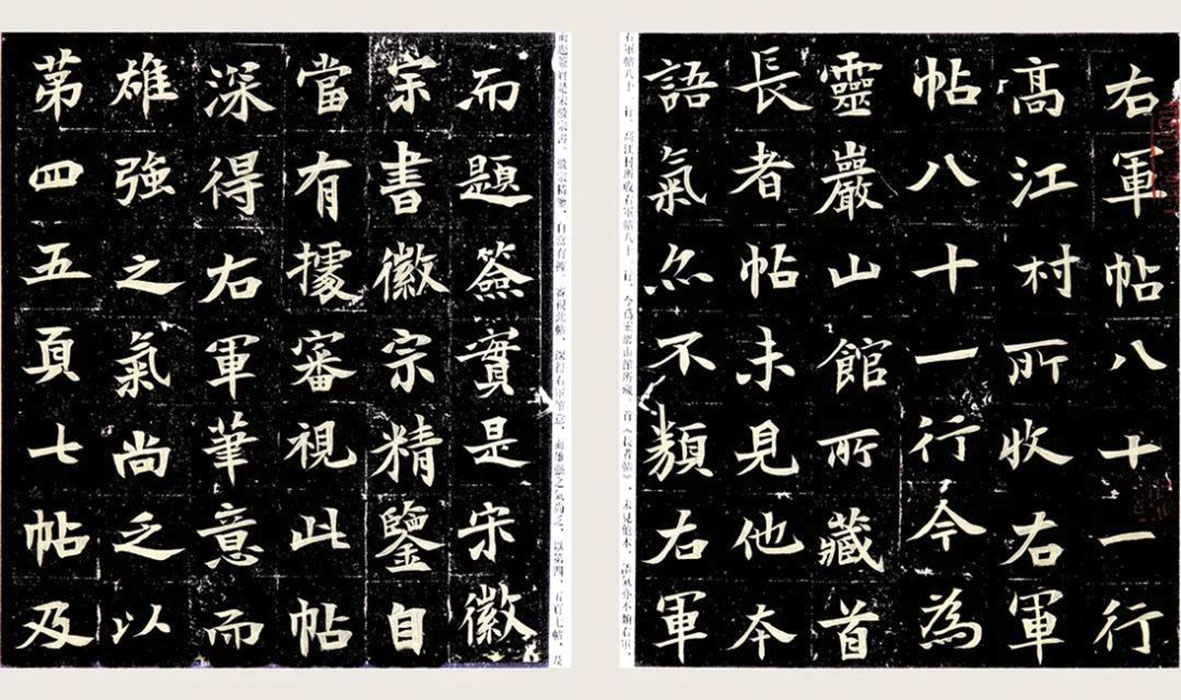 右軍帖八十一行
髙江村所收右軍
帖八十一行今為
靈巖山館所藏首
長者帖未見他本
語氣亦不類右軍
右軍帖八十一行。高江村所收右軍帖八十一行,今爲靈巖山館所藏。首《長者帖》,未見他本,語氣亦不類右軍,
而題簽實是宋徽
宗書徽宗精鑒自
當有據審視此帖
深得右軍筆意而
雄強之氣尚乏以
苐四五頁七帖及
而題簽實是宋徽宗書。徽宗精鑒,自當有據。審視此帖,深得右軍筆意,而雄强之氣尚乏。以第四、五頁七帖,及